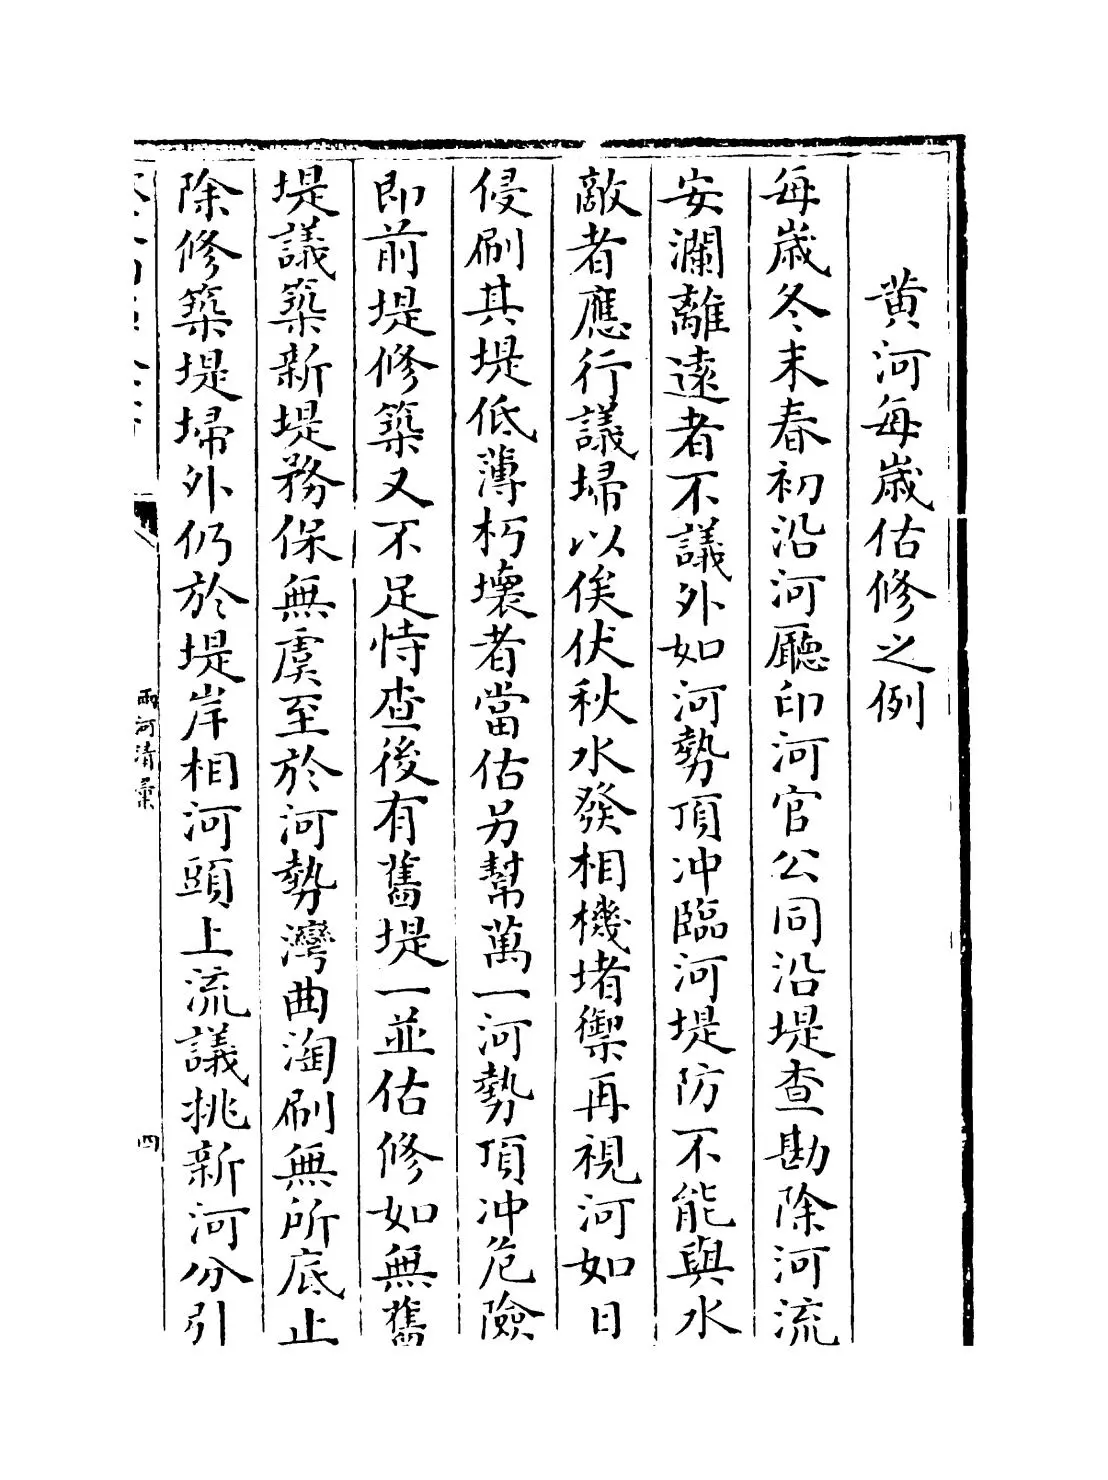 黄河每歲估修之例
每歲冬末春初沿河廳印河官公同沿堤查勘除河流
安瀾離遠者不議外如河勢頂冲臨河堤防不能與水
敵者應行議埽以俟伏秋水發相機堵禦再視河如日
侵刷其堤低薄朽壞者當估另幫萬一河勢頂冲危險
即前堤修築又不足恃查後有舊堤一並估修如無舊
堤議築新堤務保無虞至於河勢灣曲淘刷無所底止
除修築堤埽外仍於堤岸相河頭上流議挑新河分引
兩河清彙
四